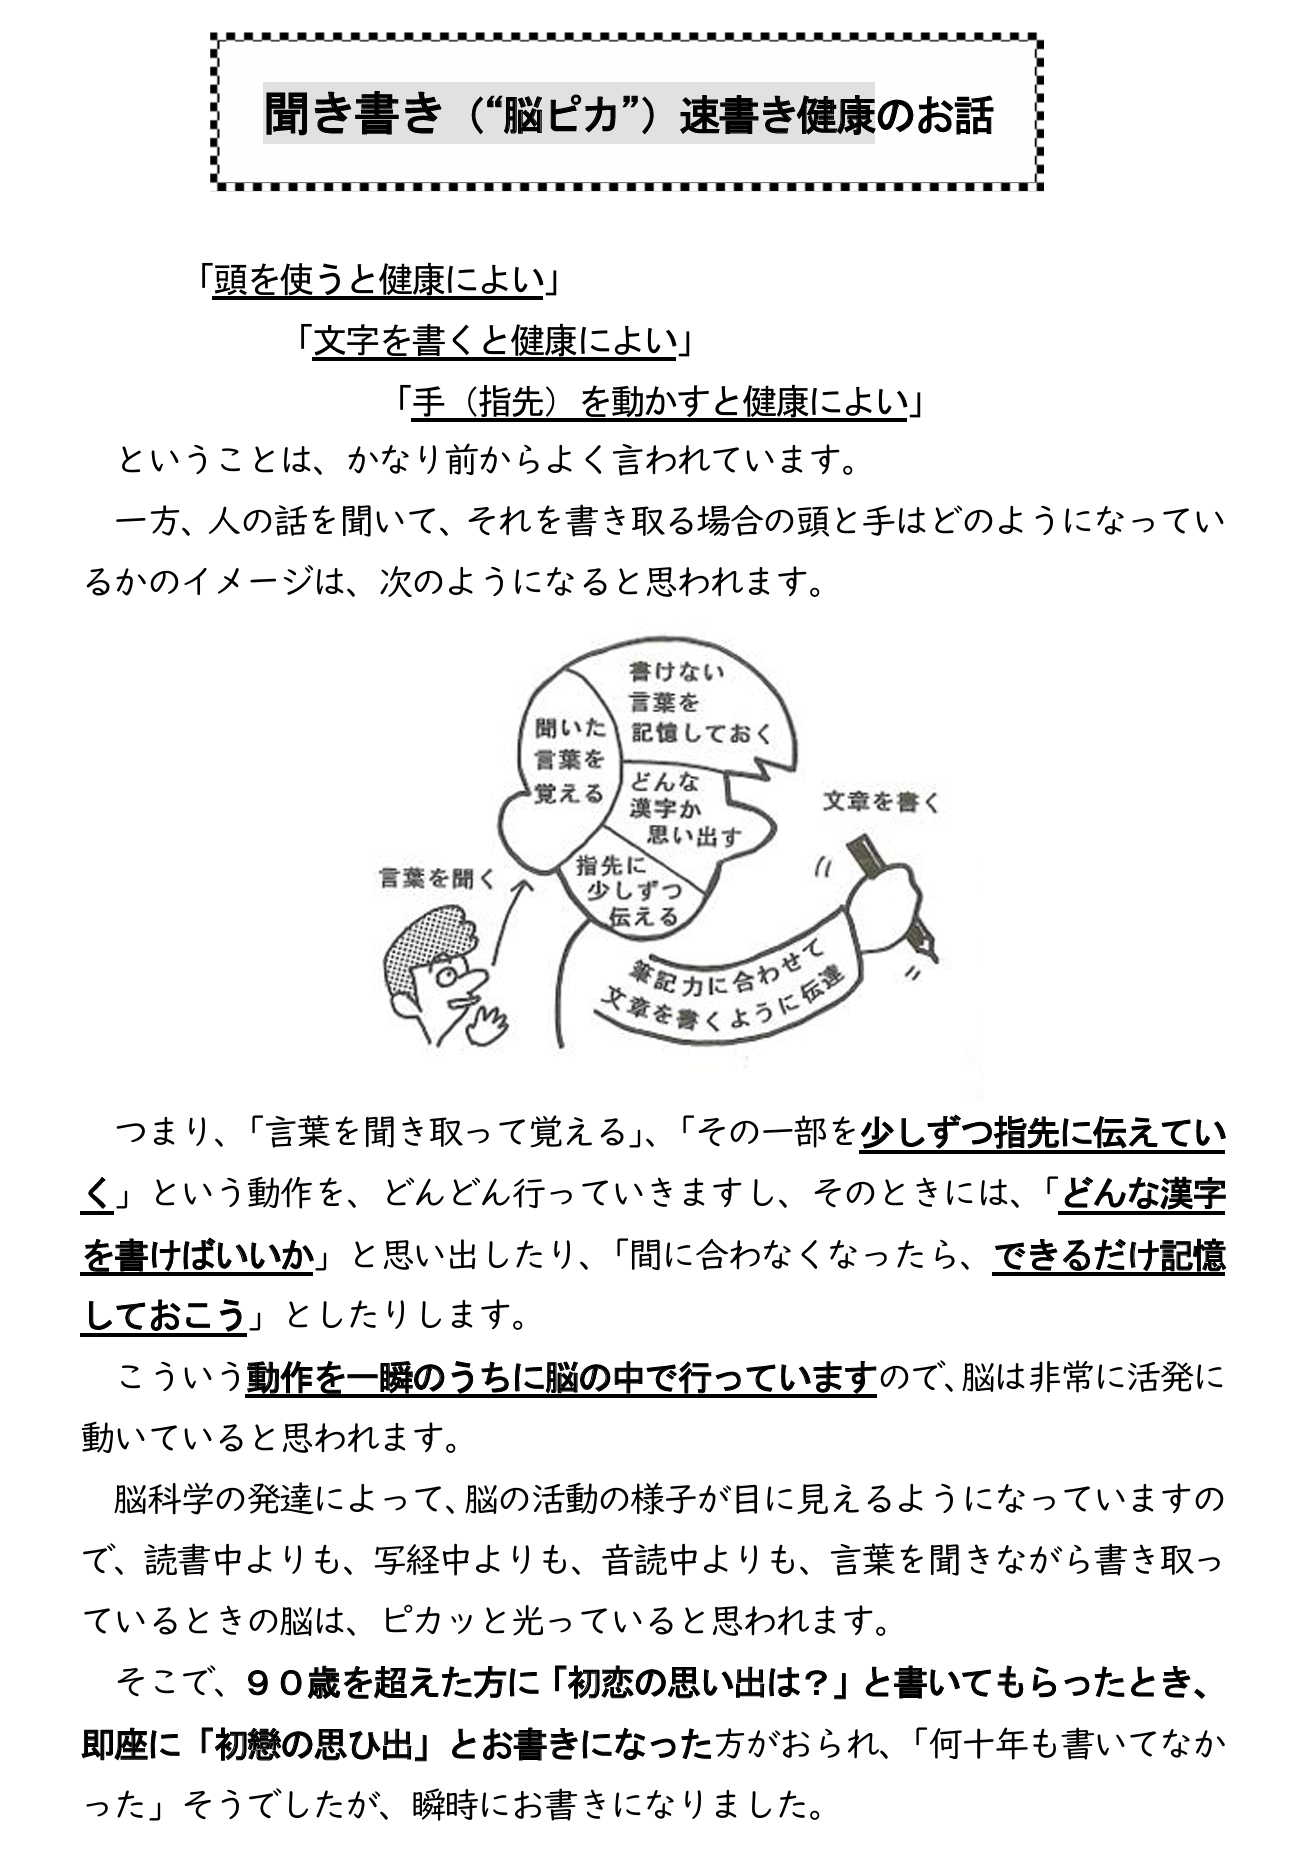 聞き書き（“脳ピカ”）速書き健康のお話
「頭を使うと健康によい」
「文字を書くと健康によい」
「手（指先）を動かすと健康によい」
ということは、かなり前からよく言われています。
一方、人の話を聞いて、それを書き取る場合の頭と手はどのようになってい
るかのイメージは、次のようになると思われます。
書けない
言葉を
記憶しておく
聞いた
言葉を
覚える
どんな
漢字か
思い出す
文章を書く
指先に
少しずつ
伝える
言葉を聞く
筆記力に合わせて
文章を書くように伝達
つまり、「言葉を聞き取って覚える」、「その一部を少しずつ指先に伝えてい
く」という動作を、どんどん行っていきますし、そのときには、「どんな漢字
を書けばいいか」と思い出したり、「間に合わなくなったら、できるだけ記憶
しておこう」としたりします。
こういう動作を一瞬のうちに脳の中で行っていますので、脳は非常に活発に
動いていると思われます。
脳科学の発達によって、脳の活動の様子が目に見えるようになっていますの
で、読書中よりも、写経中よりも、音読中よりも、言葉を聞きながら書き取っ
ているときの脳は、ピカッと光っていると思われます。
そこで、９０歳を超えた方に「初恋の思い出は？」と書いてもらったとき、
即座に「初戀の思ひ出」とお書きになった方がおられ、「何十年も書いてなか
った」そうでしたが、瞬時にお書きになりました。